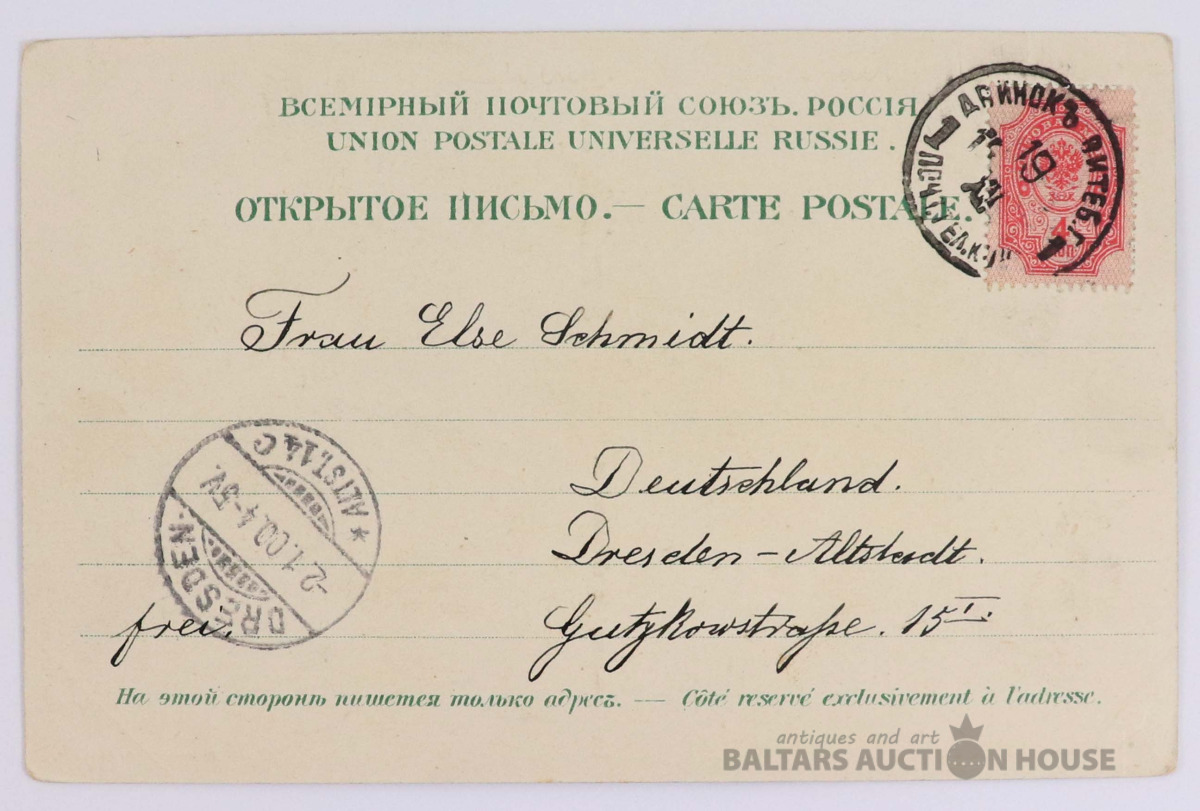 ВСЕМІРНЫЙ ПОЧТОВЫЙ СОЮЗЪ. РОССІЯ
UNION POSTALE UNIVERSELLE RUSSIE.
ОТКРЫТОЕ ПИСЬМО.— CARTE POSTALE.
ДВИНСКЪ ВИТЕБ.Г.
1
19
XII
1
4
Frau Else Schmidt.
Deutschland.
Dresden-Altstadt.
Gutzkowstraße. 15 I.
frei.
DRESDEN-
* ALTST.14 C
-2.1.00.4-5V.
На этой сторонѣ пишется только адресъ. — Côté reservé exclusivement à l'adresse.
antiques and art
BALTARS AUCTION HOUSE